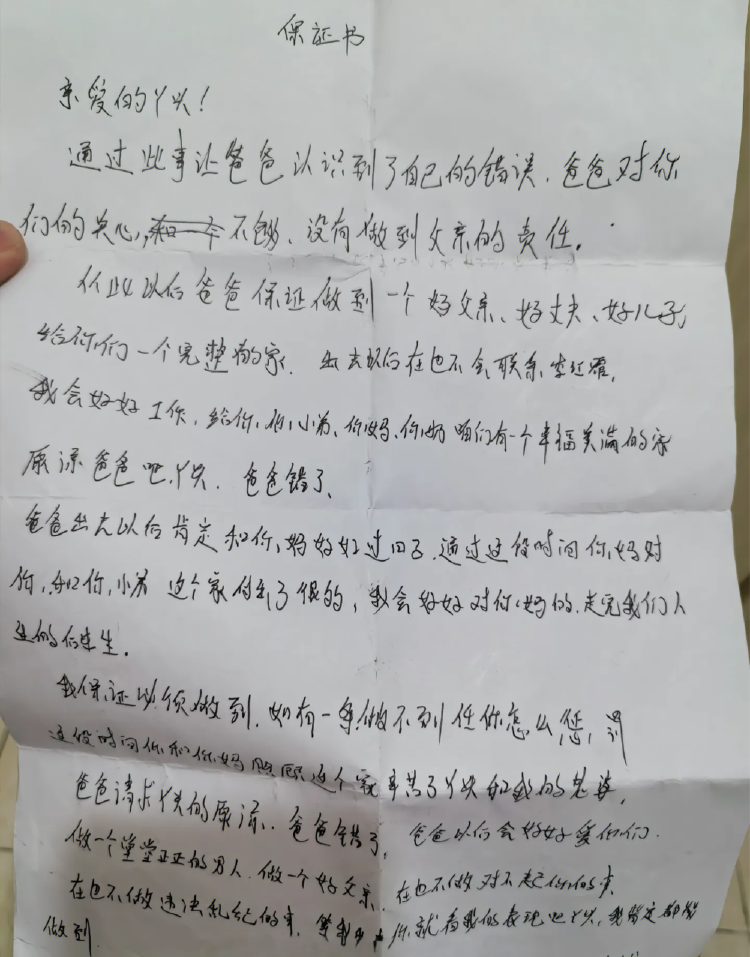 保证书
亲爱的丫头！
通过此事让爸爸认识到了自己的错误．爸爸对你
们的关心，不够、没有做到父亲的责任．
从此以后爸爸保证做到一个好父亲、好丈夫、好儿子，
给你们一个完整的家．出去以后在也不会联系李红
我会好好工作，给你，你小弟、你妈、你奶咱们有一个幸福美满的家
原谅爸爸吧，丫头．爸爸错了、
爸爸出去以后肯定和你妈好好过日子．通过这段时间你妈对
你，和你小弟 这个家付出了很的，我会好好对你妈的．走完我们人
生的后生．
我保证以须做到．如有一条做不到任你怎么惩罚
这段时间你和你妈照顾这个家辛苦了丫头和我的老婆，
爸爸请求丫头的原谅．爸爸错了，爸爸以后会好好爱你们．
做一个堂堂正正的男人．做一个好父亲．在也不做对不起你们的事．
在也不做违法乱纪的事．等我出所，就看我的表现吧丫头，我肯定都能
做到．